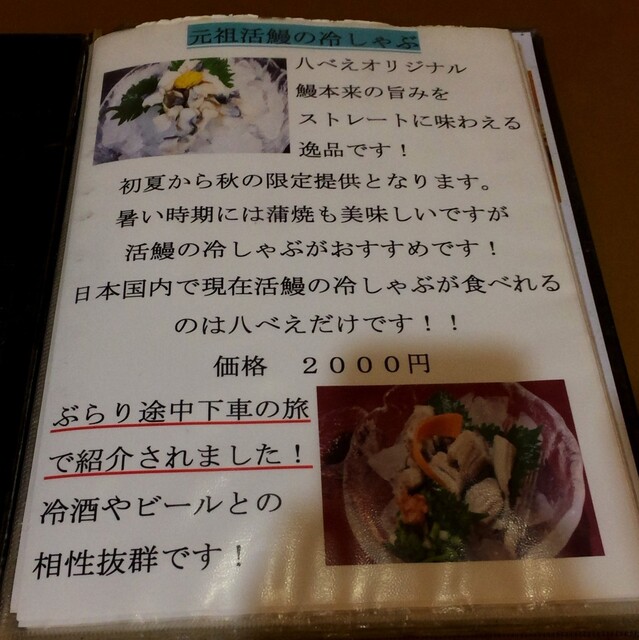 元祖活鰻の冷しゃぶ
八べえオリジナル
鰻本来の旨みを
ストレートに味わえる
逸品です！
初夏から秋の限定提供となります。
暑い時期には蒲焼も美味しいですが
活鰻の冷しゃぶがおすすめです！
日本国内で現在活鰻の冷しゃぶが食べれる
のは八べえだけです！！
価格　２０００円
ぶらり途中下車の旅
で紹介されました！
冷酒やビールとの
相性抜群です！